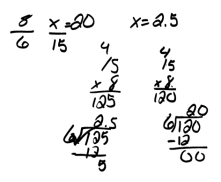 8/6 x/15 =20 x=2.5
4 4
15 15
x 8 x 8
125 120
2.5 20
6√125 6√120
-12 -12
5 00